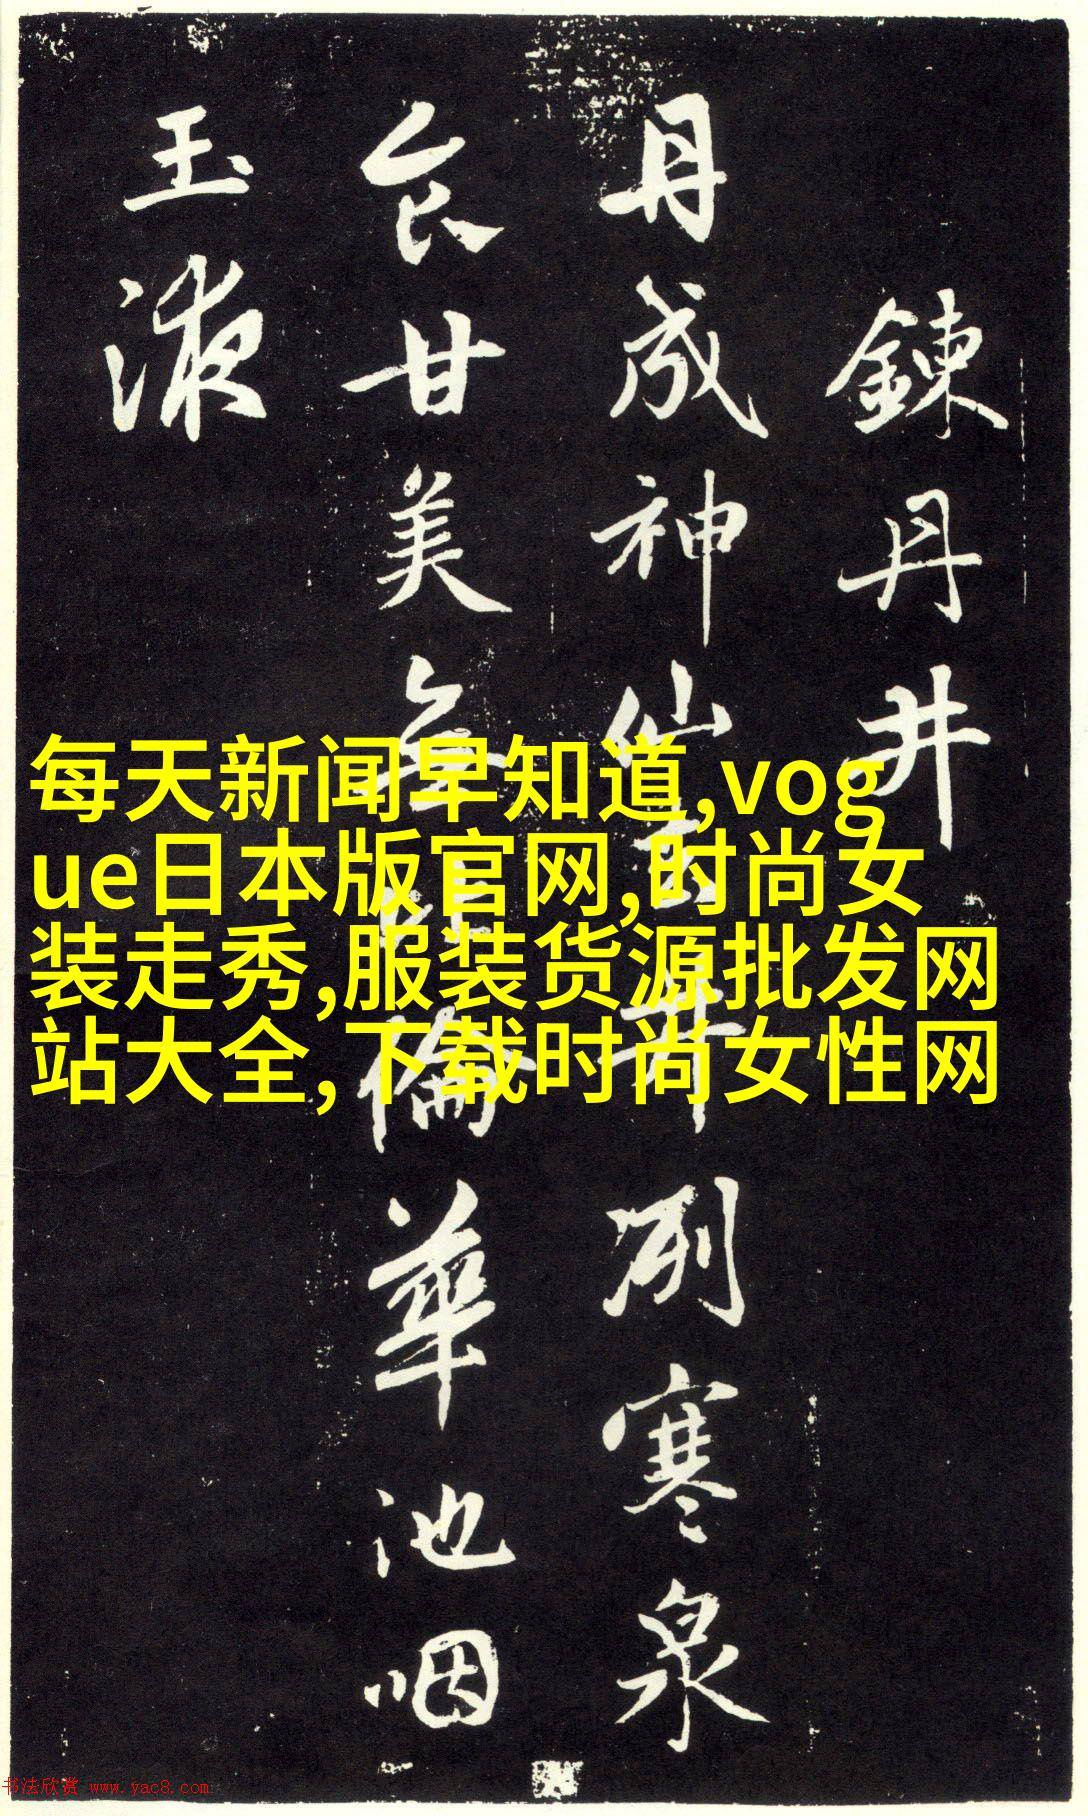 鍊丹井
丹成神仙去井冽寒泉
食甘美無比倫華池咽
玉液
每天新闻早知道,vog
ue日本版官网,时尚女
装走秀,服装货源批发网
站大全,下载时尚女性网
书法欣赏 www.yac8.com